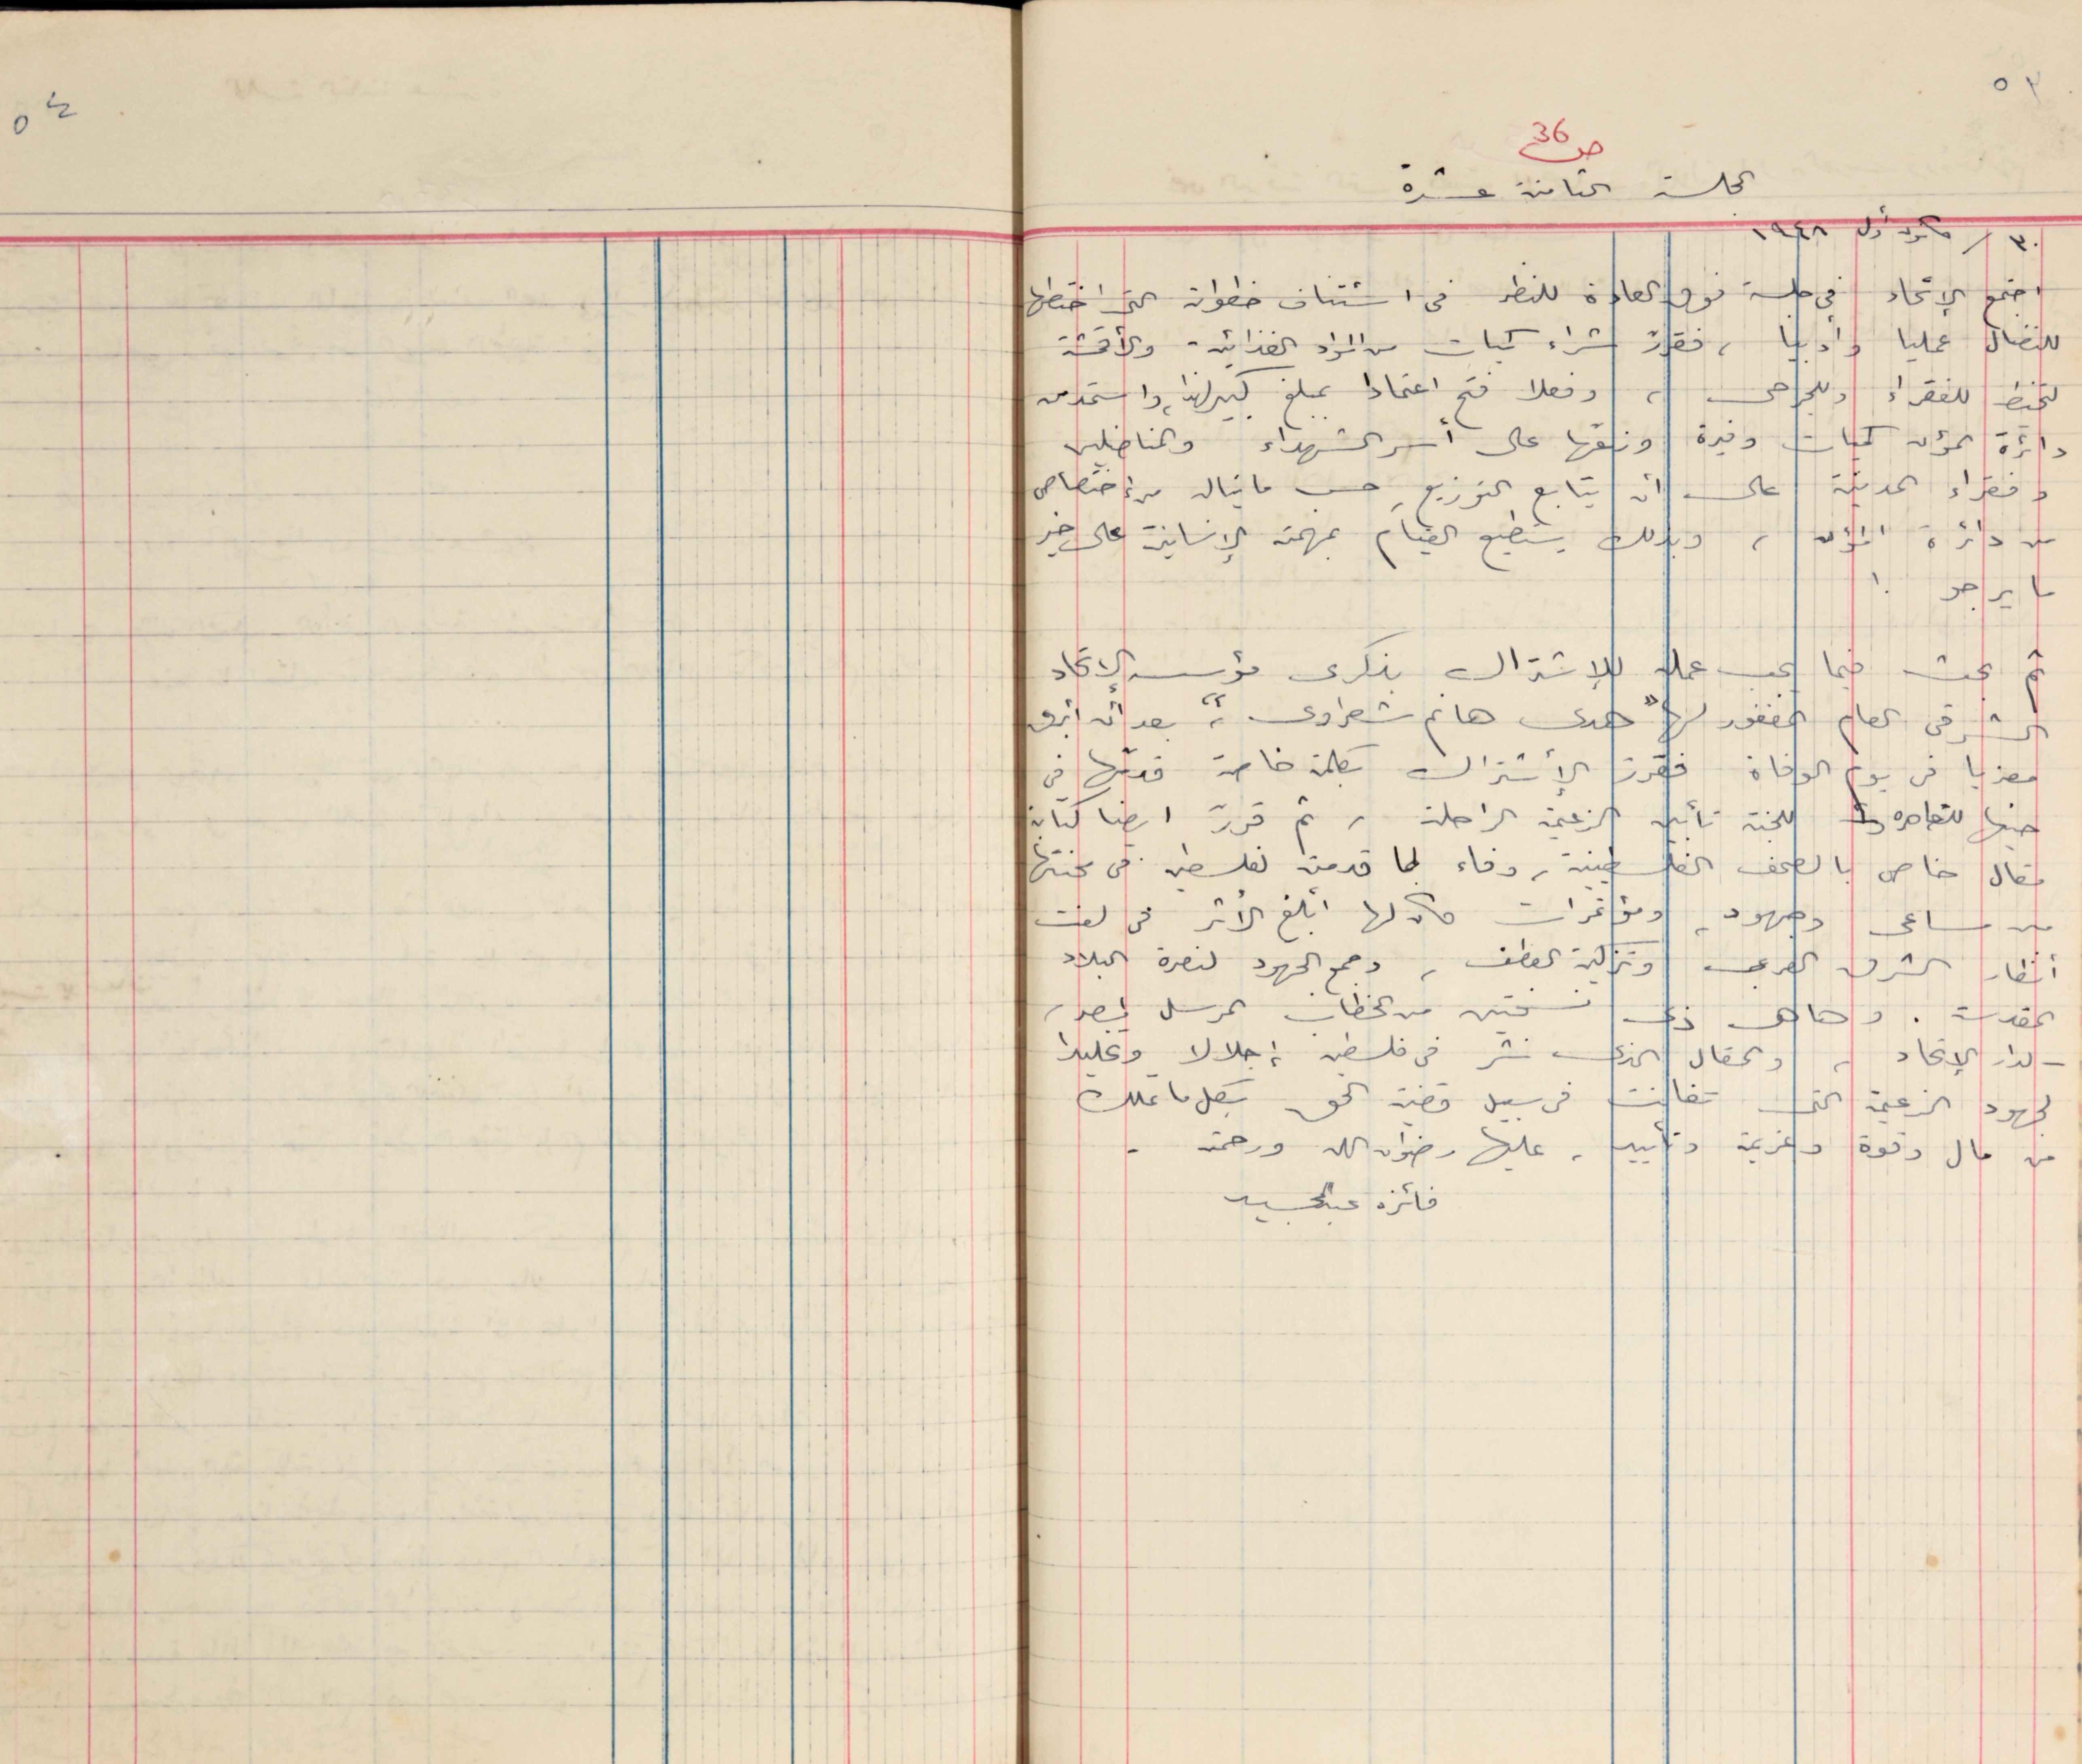 ٥٣
ص 36
الجلسة الثامنة عشرة
٣٠ / كانون أول ١٩٤٨
اجتمع الإتحاد في جلسة فوق العادة للنظر في استئناف خطواته التي اختطها
للنضال عمليا وأدبيا ، فقرر شراء كميات من المواد الغذائية والأقمشة
للفقراء وللجرحى ، وفعلا فتح اعتمادا بمبلغ كبير لهذا، واستمد من
دائرة المؤن كميات وفيرة وزعها على أسر الشهداء والمناضلين
وفقراء المدينة على أن يتابع التوزيع حسب ما ينال من اختصاص
من دائرة المؤن ، وبذلك يستطيع القيام بمهمته الإنسانية على خير
ما يرجو !
ثم بحث فيما يجب عمله للإشتراك بذكرى مؤسسة الإتحاد
الشرقي العام المغفور لها "هدى هانم شعراوى" ، بعد أن أبرق
معزيا في يوم الوفاة فقرر الأشتراك بكلمة خاصة قدمها في
حينها للقاهرة للجنة تأبين الزعيمة الراحلة ، ثم قرر ايضا كتابة
مقال خاص بالصحف الفلسطينية ، وفاء لما قدمته لفلسطين في محنتها
من مساعى وجهود ، ومؤتمرات كان لها أبلغ الأثر في لفت
أنظار الشرق العربى وتزكية العطف ، وجمع الجهود لنصرة البلاد
المقدسة . وها هى ذى نسختين من الخطاب المرسل لمصر ،
لدار الإتحاد ، والمقال الذى نشر في فلسطين ، إجلالا وتخليدا
لجهود الزعيمة التى تفانت في سبيل قضية الحق بكل ما تملك
من مال وقوة وعزيمة وتأييد ، عليها رضوان الله ورحمته .
فائزه عبد المجيد
٥٤